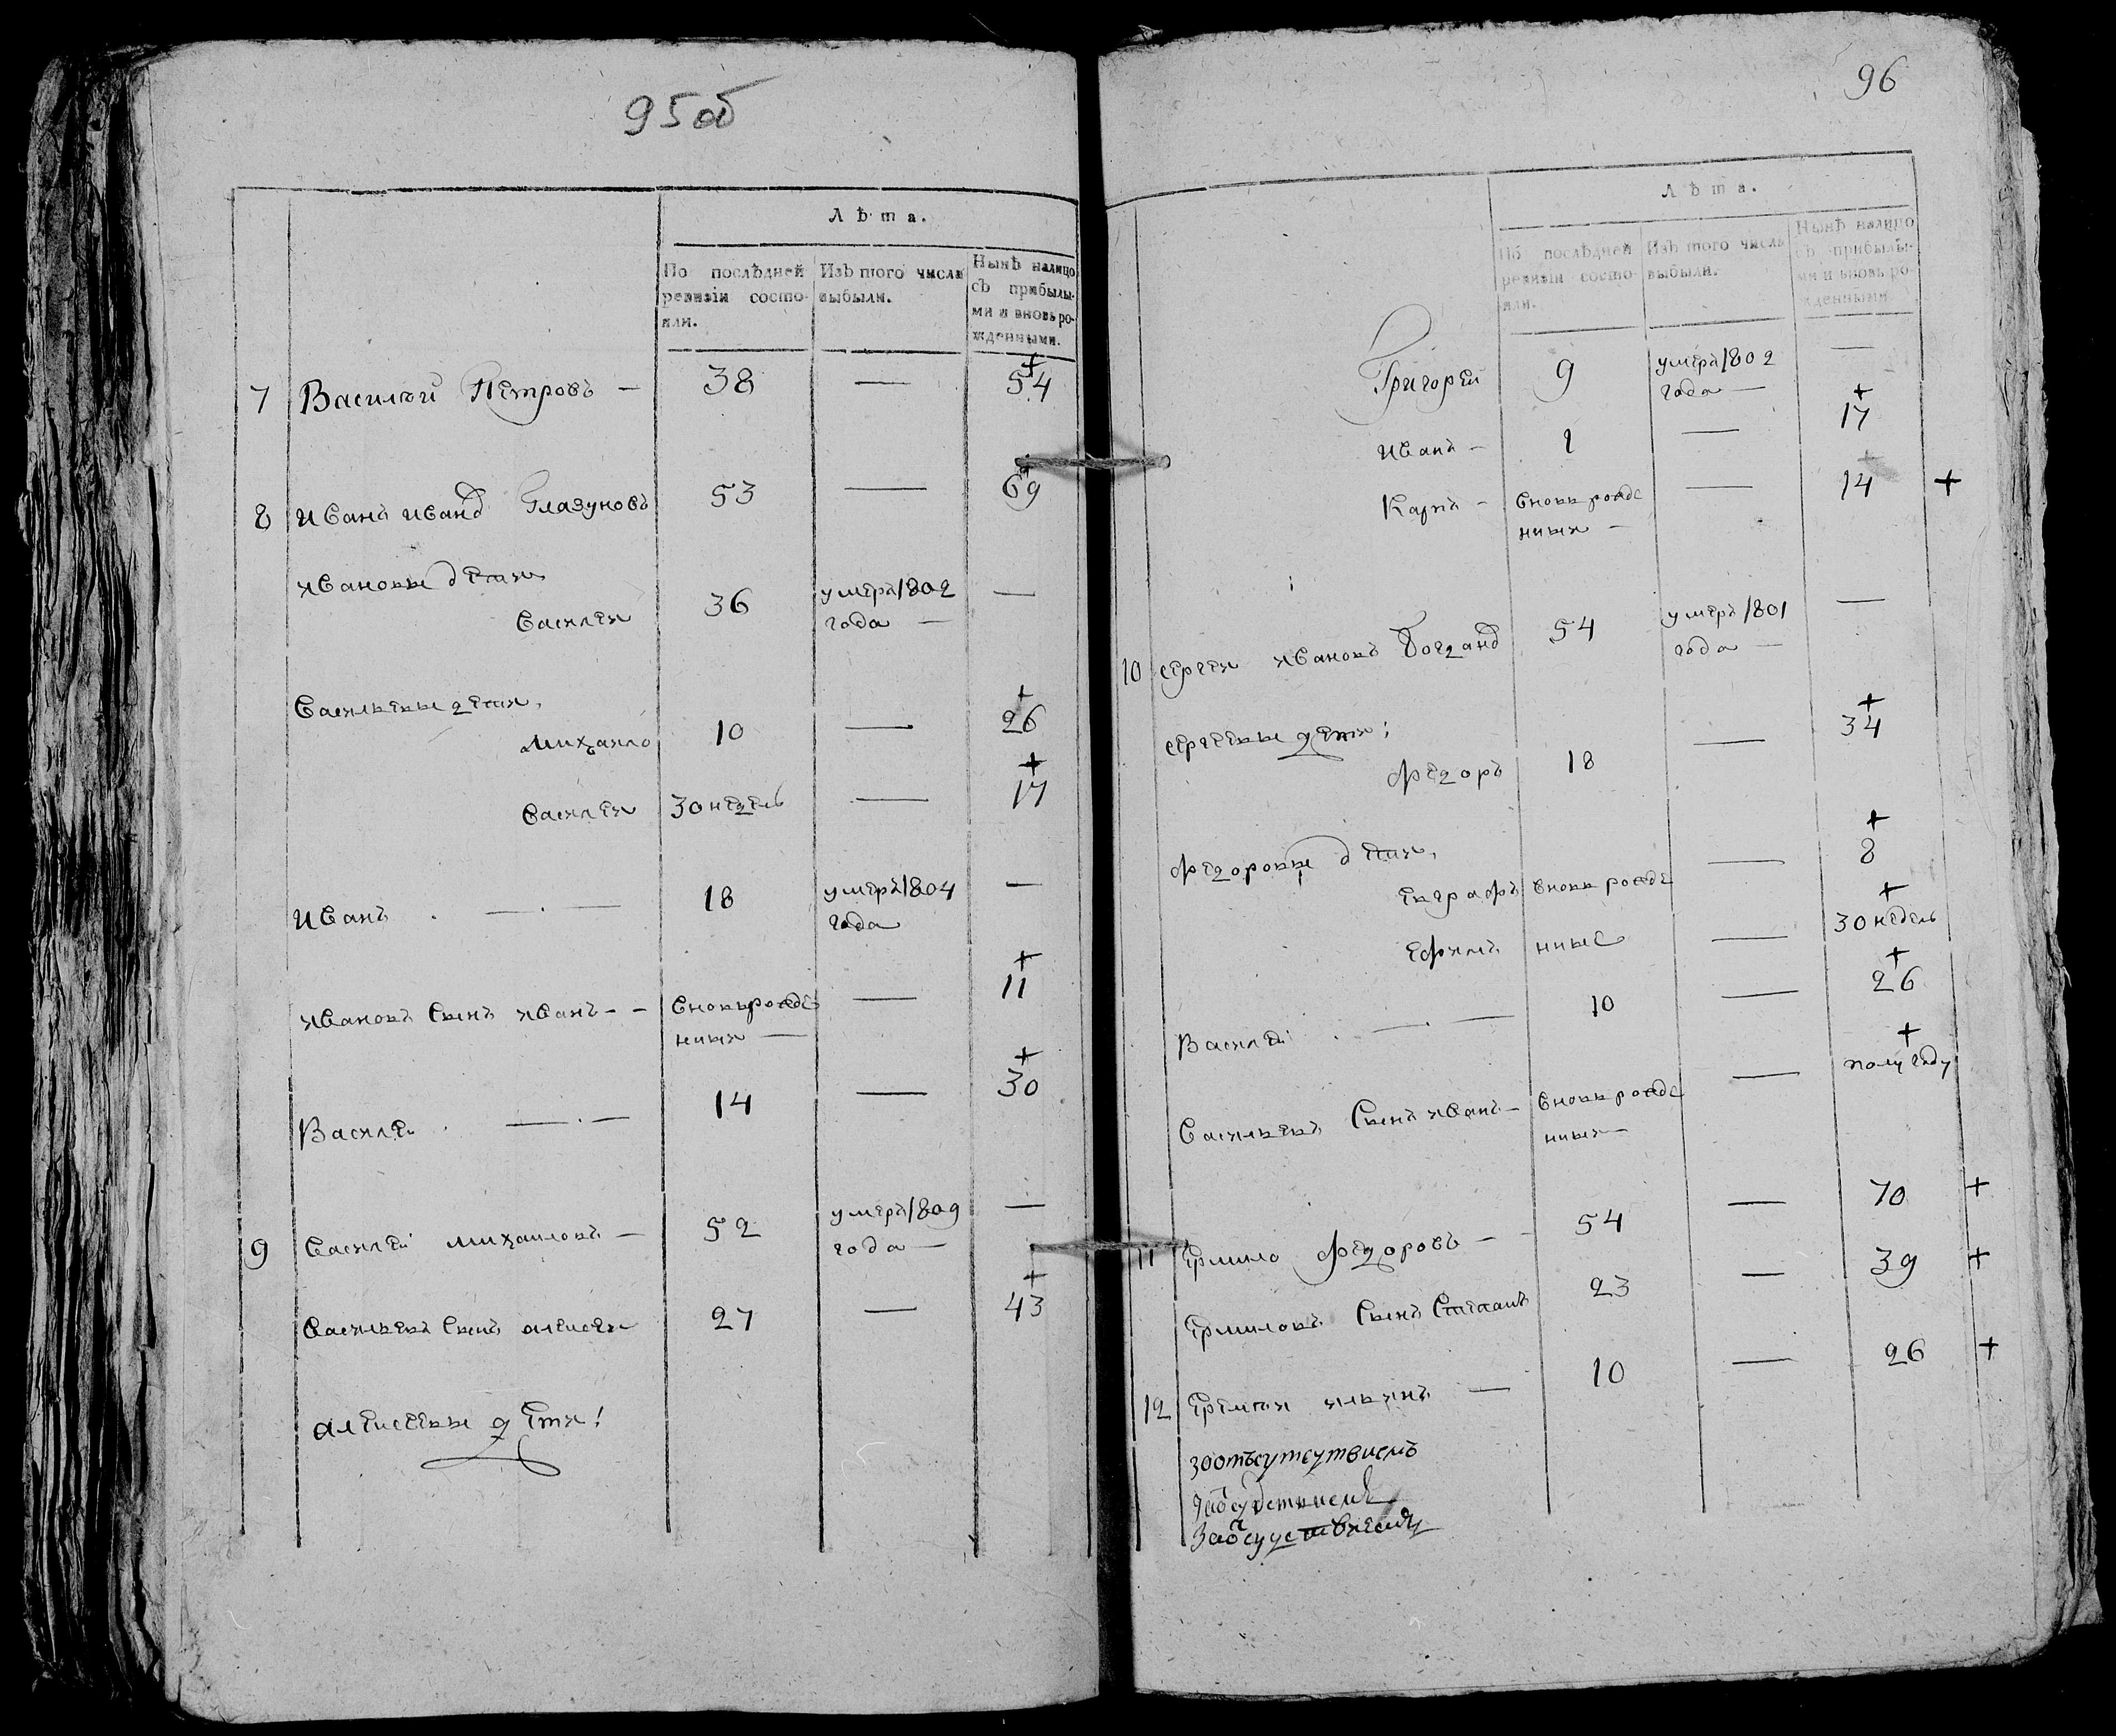 95об
Лѣта.
По послѣдней ревизіи состо-яли.
Изъ того числа выбыли.
Нынѣ налицо съ прибылы-ми и вновь ро-жденными.
7 Василѣй Петровъ — 38 — 54
8 Иванъ Иванд Глазуновъ 53 — 69
Ивановы дети
Василеи 36 умеръ 1802 года — —
Васильевы дети,
Михаило 10 — 26
Василеи 30 недель — 17
Иванъ — 18 умеръ 1804 года —
Ивановъ сынъ Иванъ - - вновь рожде нныи — — 11
Василеи — 14 — 30
9 Василеи Михаиловъ — 52 умеръ 1809 года — —
Васильевъ сынъ Алексеи 27 — 43
Алексеевы дети!
96
Лѣта.
По послѣдней ревизіи состо-яли.
Изъ того числа выбыли.
Нынѣ налицо съ прибылы-ми и вновь ро-жденными.
Григореи 9 умеръ 1802 года — —
Иванъ — 1 — 17
Карпъ — вновь рожде нныи — — 14 +
10 Сергеи Ивановъ 54 умеръ 1801 года — —
Сергеевы дети;
Федоръ 18 — 34
Федоровы дети,
Евграфъ вновь рожде — 8
Ефимъ нные — 30 недель
Василеи — 10 — 26
Васильевъ сынъ Иванъ — вновь рожде нныи — — полу году
11 Ермило Федоровъ — 54 — 70 +
Ермиловъ сынъ Степанъ 23 — 39 +
12 Еремеи Ильинъ — 10 — 26 +